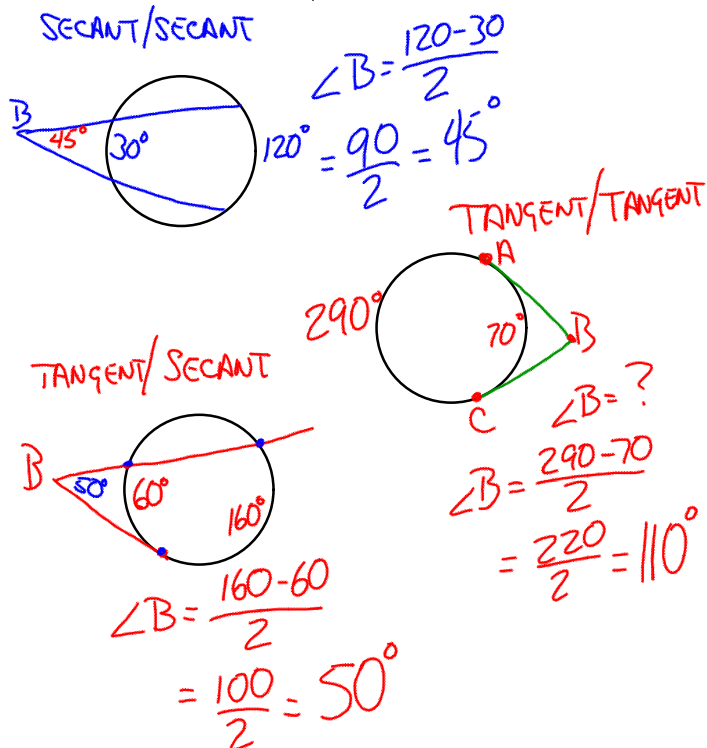 SECANT/SECANT
∠B = 120-30 / 2
= 90 / 2 = 45°
B
45°
30°
120°
TANGENT/TANGENT
A
290°
70°
B
C
∠B = ?
∠B = 290-70 / 2
= 220 / 2 = 110°
TANGENT/SECANT
B
50°
60°
160°
∠B = 160-60 / 2
= 100 / 2 = 50°